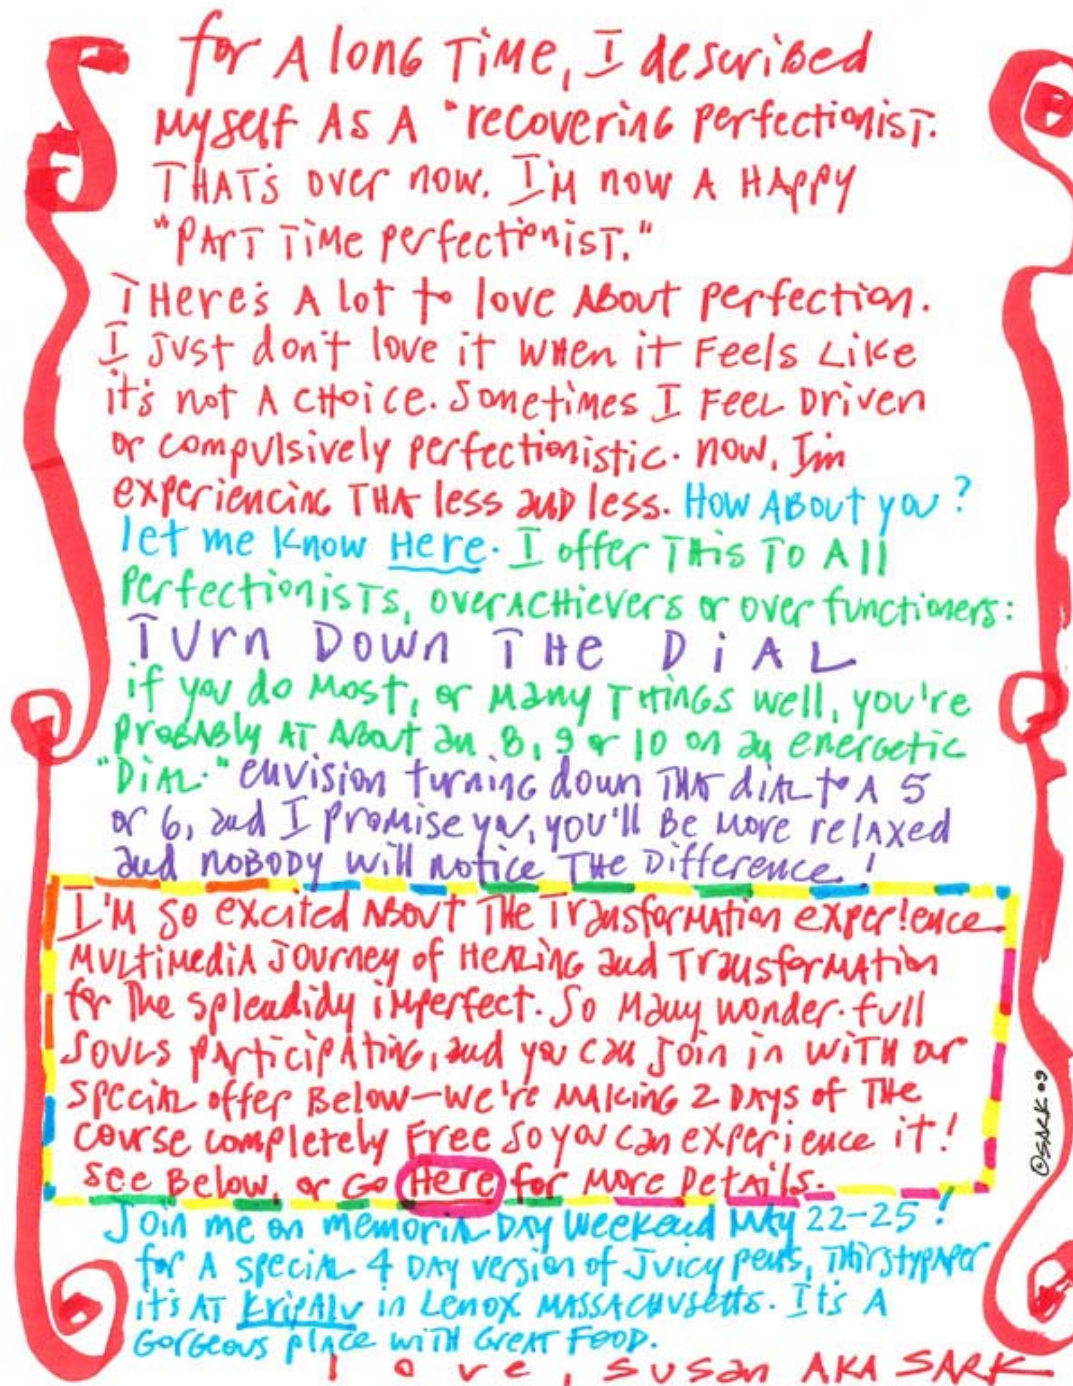 for A long Time, I described
Myself As A "recovering perfectionist.
THAT's over now. I'm now A HAppy
"PArT Time perfectionisT."
THere's A lot to love About perfection.
I just don't love it when it Feels Like
it's not A cHoice. Sometimes I Feel Driven
or compulsively perfectionistic. now, I'm
experiencing THAt less and less. How About you?
let me know Here. I offer THis To All
perfectionisTs, overAcHievers or over functioners:
Turn Down THe DiAL
if you do Most, or Many THings well, you're
probAbly AT About an 8, 9 or 10 on an energetic
"DiAL." envision turning down THAT diAL to A 5
or 6, and I promise you, you'll Be More relaxed
and noBODY will notice THe Difference!
I'M so excited About THe TransforMAtion exper!ence
MultiMediA Journey of HeALing and TransforMAtion
for THe splendidy iMperfect. So Many wonder.full
Souls pArticipAting, and you can Join in wiTH our
speciAL offer Below-we're MAking 2 DAys of THe
course completely Free so you can experience it!
see Below, or Go Here for More DetAils.
Join me on memoriAL DAy weekend MAy 22-25!
for A speciAL 4 DAy version of Juicy pens, THirstypAper
it's AT KripAlu in Lenox MASSACHusetts. It's A
Gorgeous plAce wiTH GreAT Food.
love, Susan AKA SARK
©SARK 09